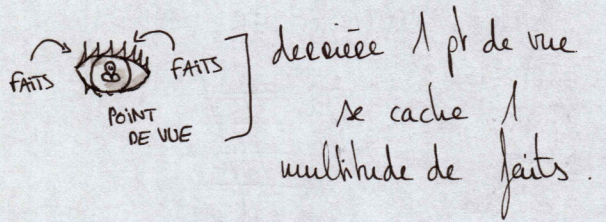 FAITS
FAITS
POINT
DE VUE
derrière 1 pt de vue
se cache 1
multitude de faits.